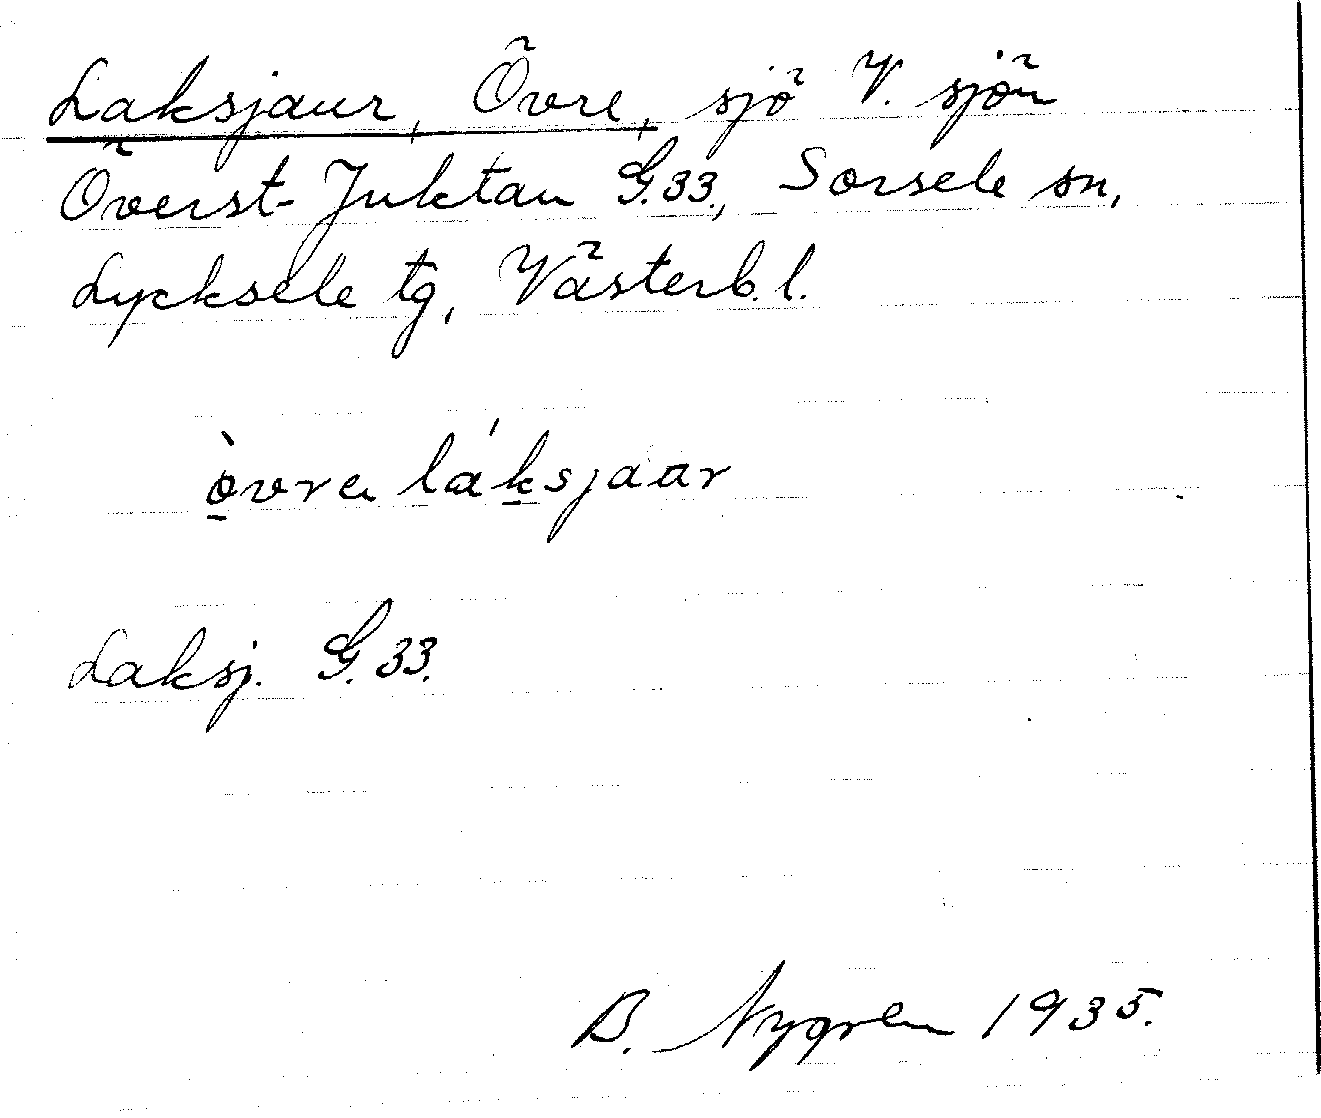 Laksjaur, Övre, sjö V. sjön
Överst-Juktan G.33., Sorsele sn,
Lycksele tg, Västerb. l.
òvrа láksjaar
Laksj. G. 33.
B. Nygren 1935.